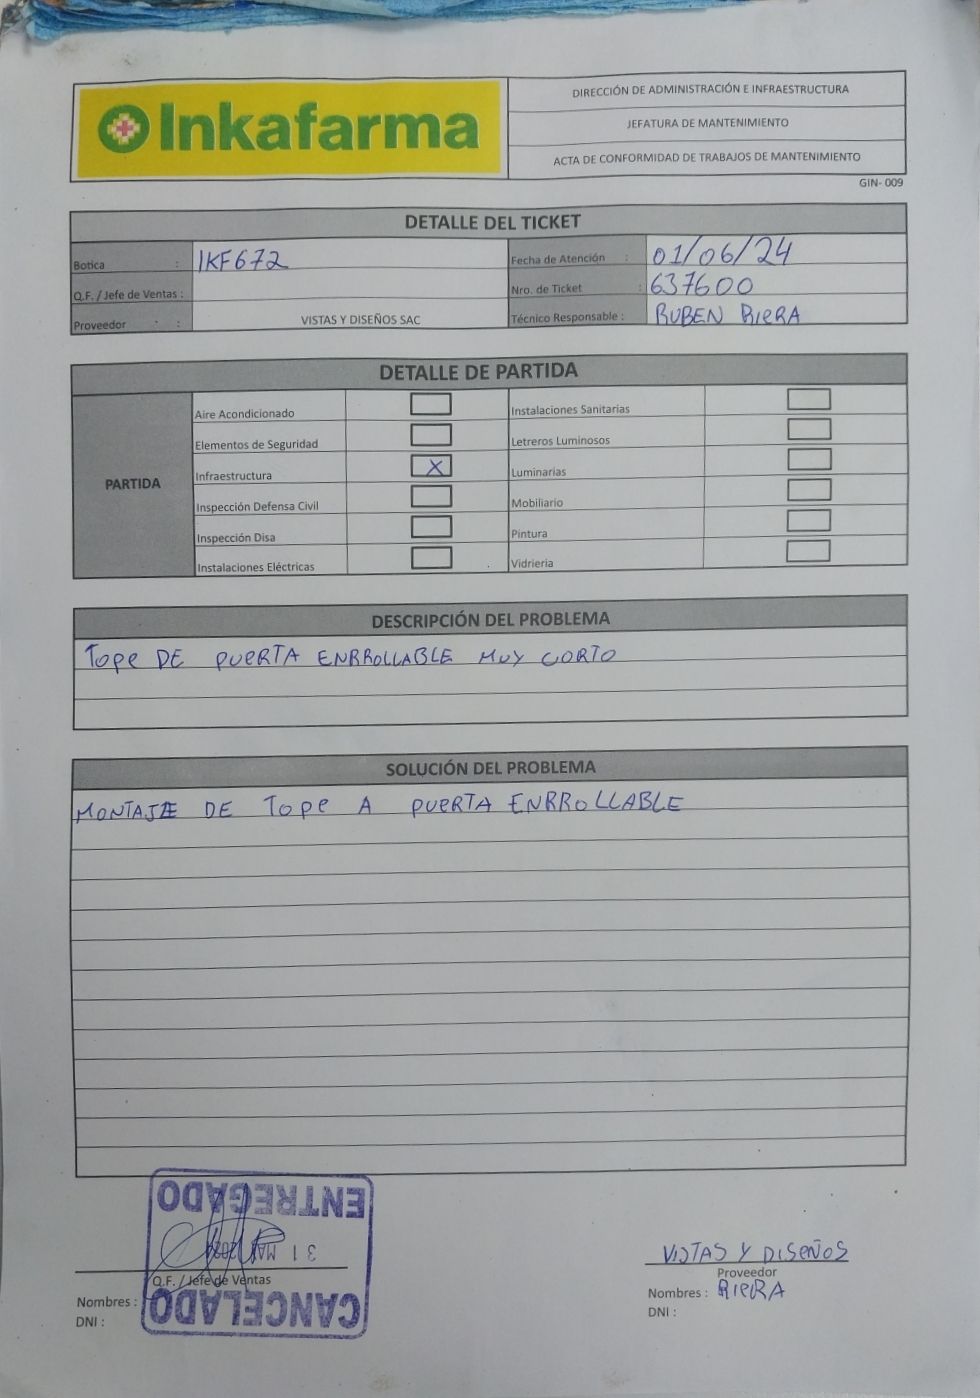 Inkafarma
DIRECCIÓN DE ADMINISTRACIÓN E INFRAESTRUCTURA
JEFATURA DE MANTENIMIENTO
ACTA DE CONFORMIDAD DE TRABAJOS DE MANTENIMIENTO
GIN- 009
DETALLE DEL TICKET
Botica : IKF672 Fecha de Atención : 01/06/24
Q.F. / Jefe de Ventas : Nro. de Ticket : 637600
Proveedor : VISTAS Y DISEÑOS SAC Técnico Responsable : RUBEN RIERA
DETALLE DE PARTIDA
PARTIDA
Aire Acondicionado Instalaciones Sanitarias
Elementos de Seguridad Letreros Luminosos
Infraestructura X Luminarias
Inspección Defensa Civil Mobiliario
Inspección Disa Pintura
Instalaciones Eléctricas Vidrieria
DESCRIPCIÓN DEL PROBLEMA
TOPE DE PUERTA ENRROLLABLE MUY CORTO
SOLUCIÓN DEL PROBLEMA
MONTAJE DE TOPE A PUERTA ENRROLLABLE
ENTREGADO
31 MAY 2024
CANCELADO
Q.F. / Jefe de Ventas
Nombres :
DNI :
VISTAS Y DISEÑOS
Proveedor
Nombres : RIERA
DNI :